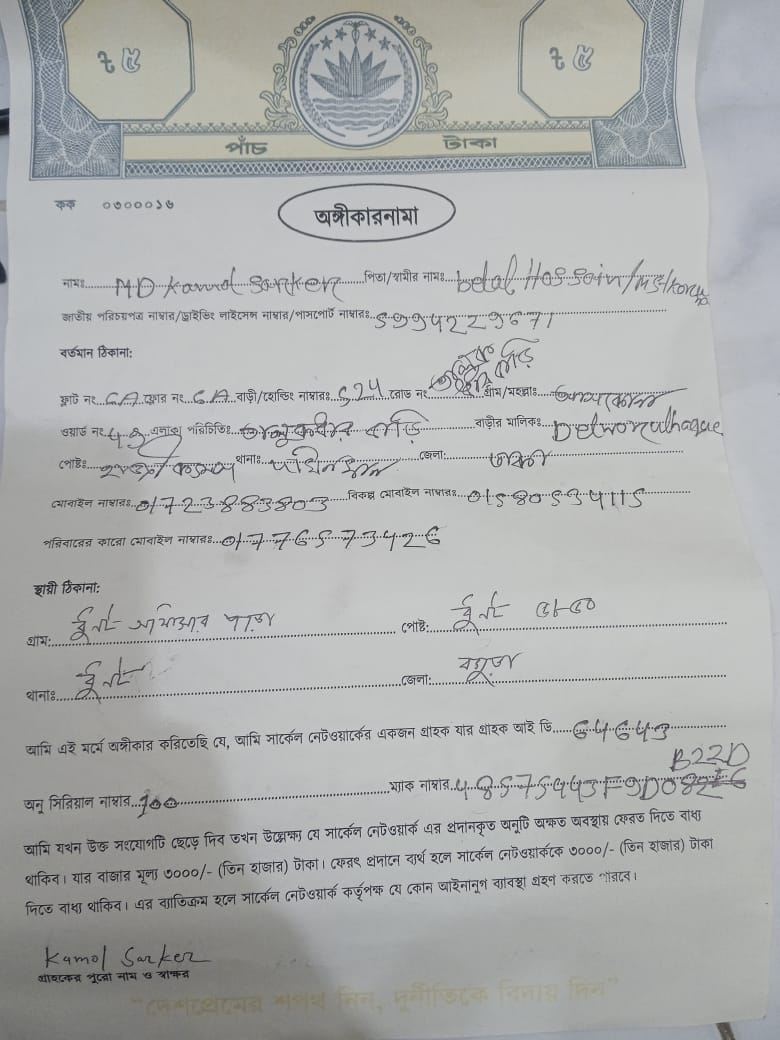 ৳ ৫ ৳ ৫
পাঁচ টাকা
কক ০৩০০০১৬
অঙ্গীকারনামা
নামঃ MD Kamol Sarker পিতা/স্বামীর নামঃ belal Hossain/
জাতীয় পরিচয়পত্র নাম্বার/ড্রাইভিং লাইসেন্স নাম্বার/পাসপোর্ট নাম্বারঃ 5994229671
বর্তমান ঠিকানা:
ফ্লাট নং 6A ফ্লোর নং 6A বাড়ী/হোল্ডিং নাম্বারঃ 524 রোড নং গ্রাম/মহল্লাঃ
ওয়ার্ড নং 42 এলাকা পরিচিতিঃ বাড়ি বাড়ীর মালিকঃ
পোষ্টঃ থানাঃ জেলা: ঢাকা
মোবাইল নাম্বারঃ 01723883803 বিকল্প মোবাইল নাম্বারঃ 01580534115
পরিবারের কারো মোবাইল নাম্বারঃ 01776573426
স্থায়ী ঠিকানা:
গ্রাম: ধুনট পাড়া পোষ্ট: ধুনট
থানাঃ ধুনট জেলা: বগুড়া
আমি এই মর্মে অঙ্গীকার করিতেছি যে, আমি সার্কেল নেটওয়ার্কের একজন গ্রাহক যার গ্রাহক আই ডি 64643
B22D
অনু সিরিয়াল নাম্বার 100 ম্যাক নাম্বার 48575443F9D0
আমি যখন উক্ত সংযোগটি ছেড়ে দিব তখন উল্লেক্ষ্য যে সার্কেল নেটওয়ার্ক এর প্রদানকৃত অনুটি অক্ষত অবস্থায় ফেরত দিতে বাধ্য
থাকিব। যার বাজার মূল্য ৩০০০/- (তিন হাজার) টাকা। ফেরৎ প্রদানে ব্যর্থ হলে সার্কেল নেটওয়ার্ককে ৩০০০/- (তিন হাজার) টাকা
দিতে বাধ্য থাকিব। এর ব্যাতিক্রম হলে সার্কেল নেটওয়ার্ক কর্তৃপক্ষ যে কোন আইনানুগ ব্যাবস্থা গ্রহণ করতে পারবে।
Kamol Sarker
গ্রাহকের পুরো নাম ও স্বাক্ষর
"দেশপ্রেমের শপথ নিন, দুর্নীতিকে বিদায় দিন"